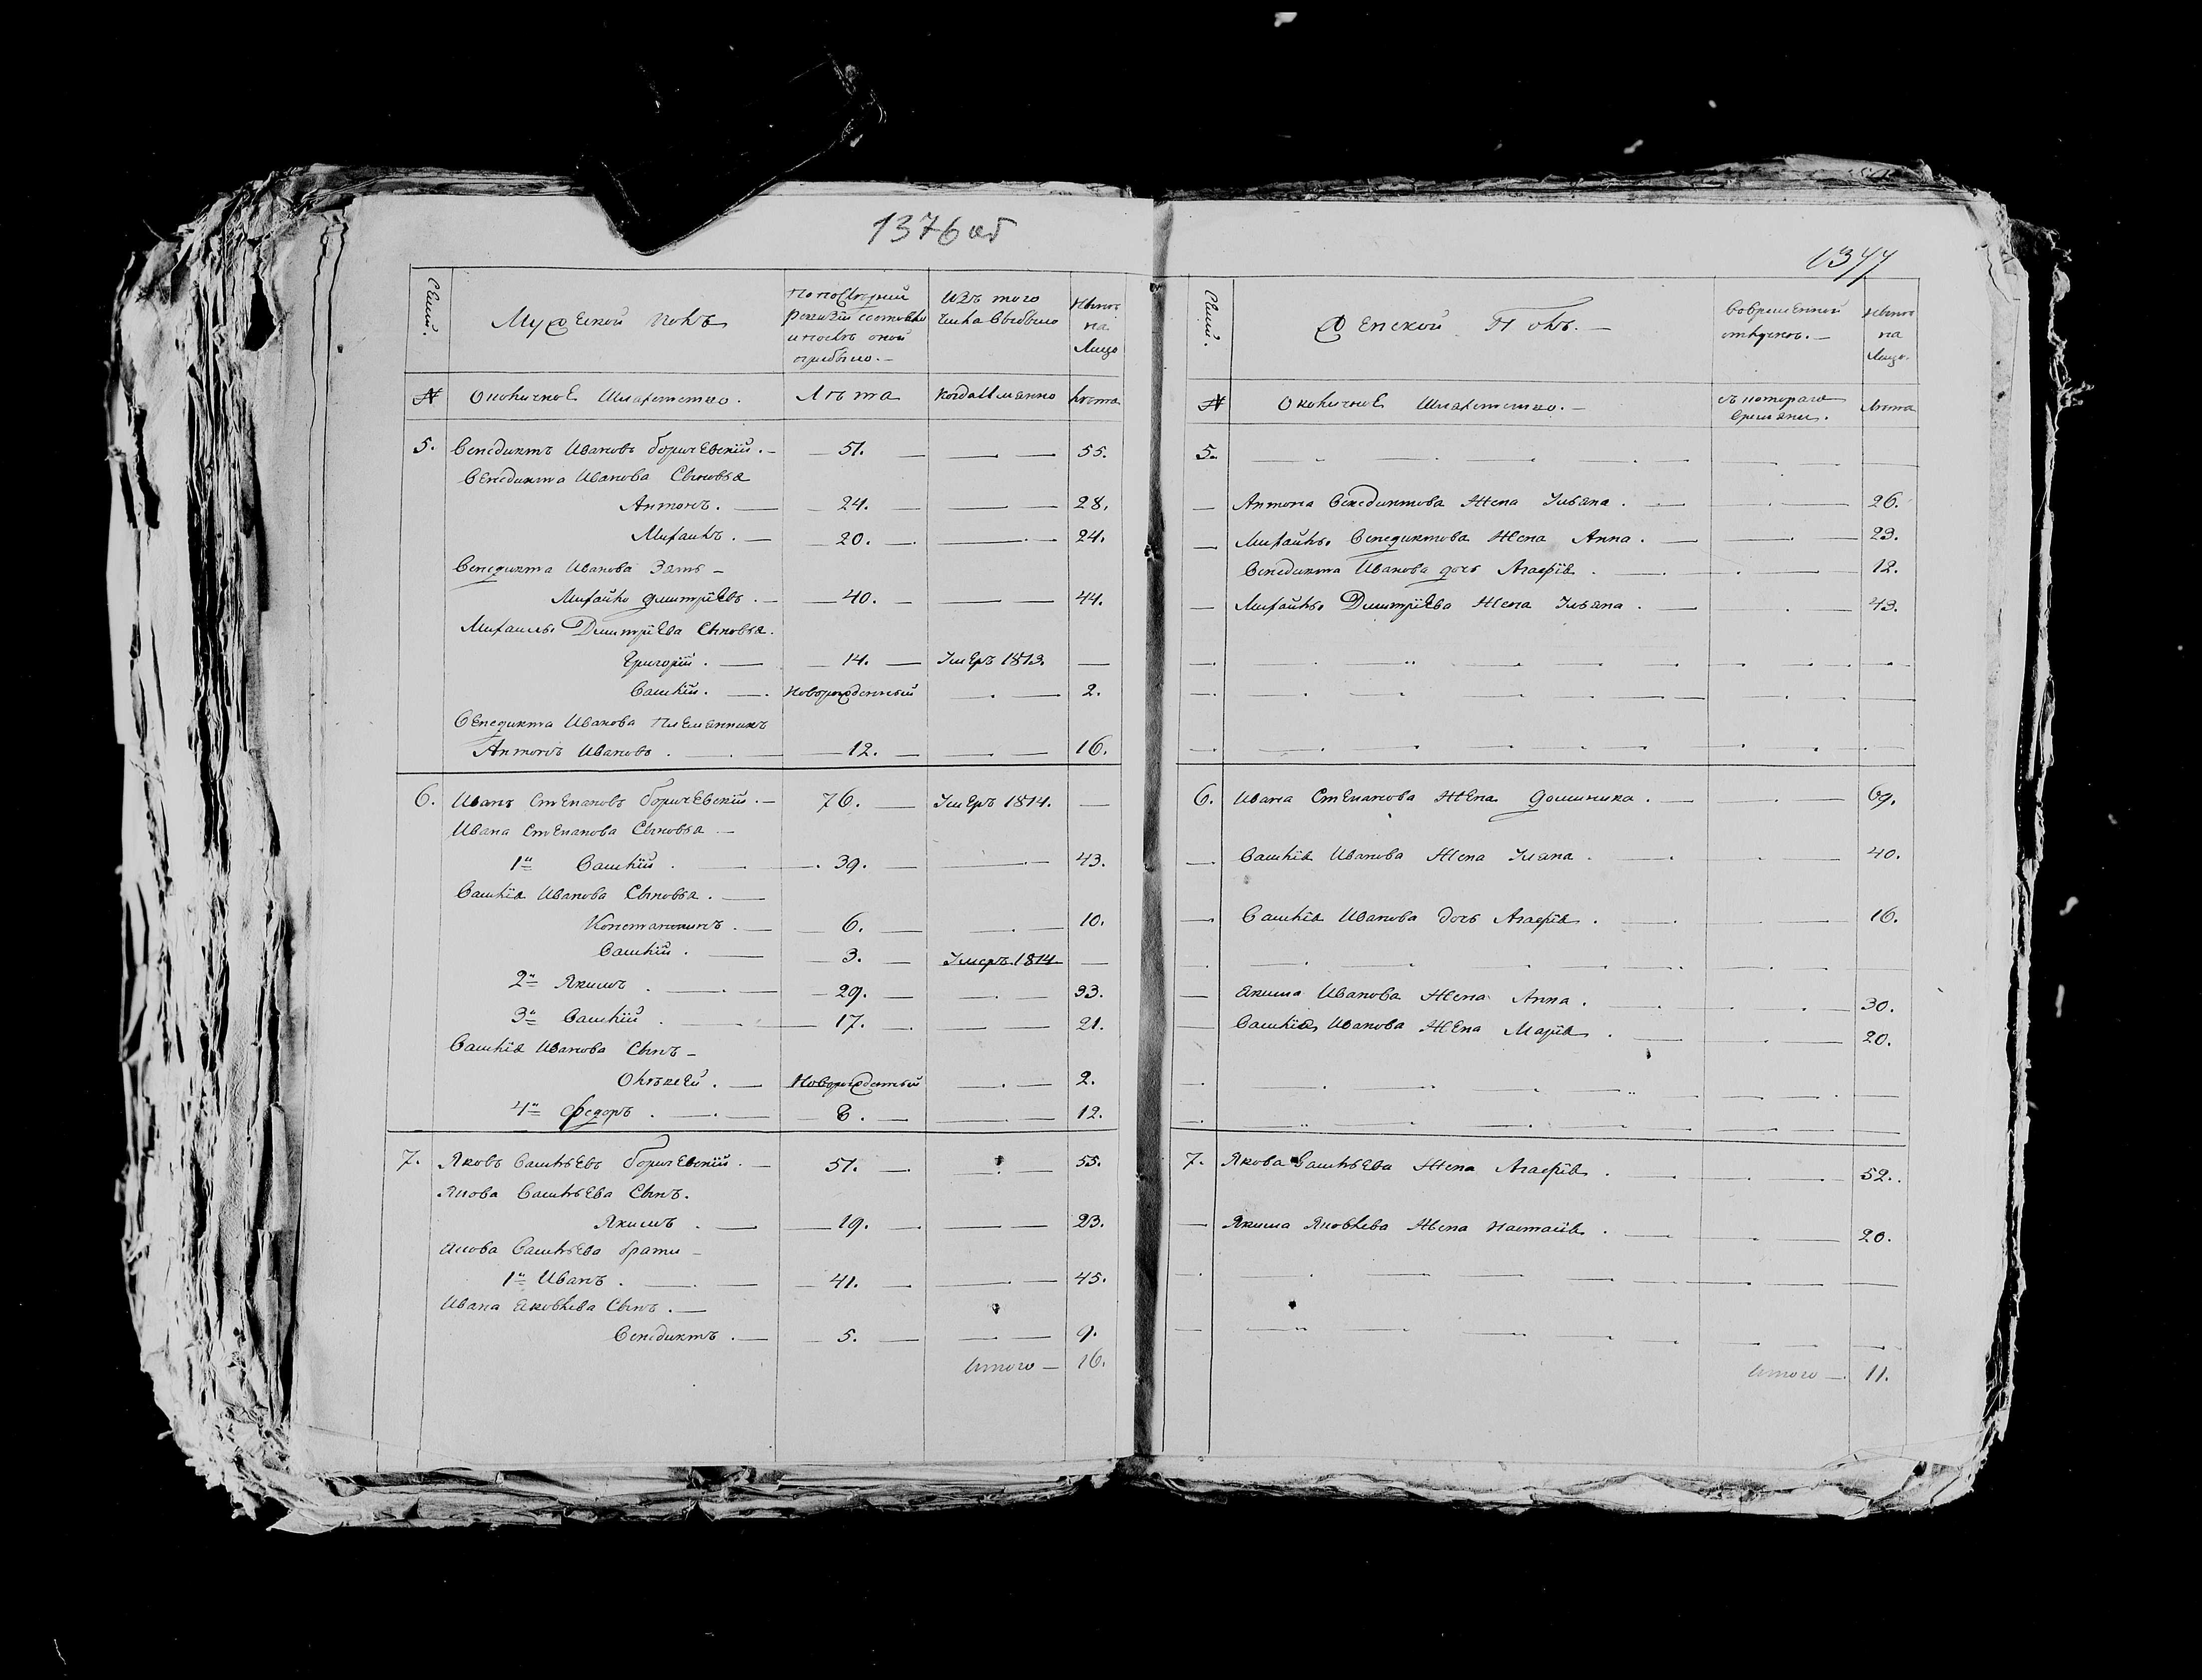 1376 об
Семей.
Мужеской полъ
По последней
ревизіи состояло
и после оной
прибыло.—
Изъ того
числа выбыло
Ныне
на
Лицо
№
Околичное Шляхетство.
Лѣта
Когда Именно
Лѣта
5. Венедиктъ Ивановъ Боричевскій.— 51. — 55.
Венедикта Иванова Сыновья
Антонъ. — 24. — 28.
Михаилъ. — 20. — 24.
Венедикта Иванова Зять —
Михайло Дмитріевъ. — 40. — 44.
Михаилы Дмитріева Сыновья.
Григорій. — 14. — Умеръ 1813. —
Василій. — Новорожденный — 2.
Венедикта Иванова Племянникъ
Антонъ Ивановъ. — 12. — 16.
6. Иванъ Степановъ Боричевскій.— 76. — Умеръ 1814. —
Ивана Степанова Сыновья —
1й Василій. — 39. — 43.
Василія Иванова Сыновья. —
Константинъ. — 6. — 10.
Василій. — 3. — Умеръ 1814. —
2й Якимъ. — 29. — 33.
3й Василій. — 17. — 21.
Василія Иванова Сынъ —
Олѣксей. — Новорожденный — 2.
4й Федоръ. — 8. — 12.
7. Яковъ Васильевъ Боричевскій. — 51. — 55.
Якова Васильева Сынъ.
Якимъ. — 19. — 23.
Якова Васильева братья —
1й Иванъ. — 41. — 45.
Ивана Яковлева Сынъ. —
Венедиктъ. — 5. — 9.
Итого — 16.
1377
Семей.
Женской Полъ.—
Вовременной
отлучкѣ.—
Ныне
на
Лицо.
№
Околичное Шляхетство.—
съ котораго
времяни.
Лѣта
5.
— Антона Венедиктова Жена Ульяна. — 26.
— Михайлы Венедиктова Жена Анна. — 23.
Венедикта Иванова дочь Агафія. — 12.
— Михайлы Дмитріева Жена Ульяна. — 43.
6. Ивана Степанова Жена Доминика. — 69.
— Василія Иванова Жена Уляна. — 40.
— Василія Иванова дочь Агафія. — 16.
— Якима Иванова Жена Анна. — 30.
— Василія Иванова Жена Марія. — 20.
7. Якова Васильева Жена Агафія. — 52.
— Якима Яковлева Жена Настасія. — 20.
Итого — 11.